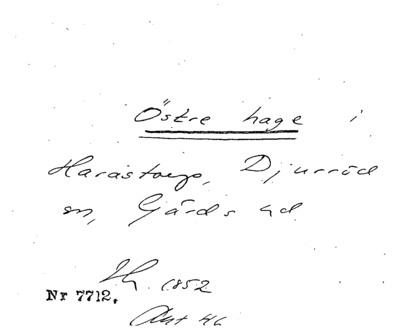 Östre hage i
Harastorp, Djurröd
sn, Gärds hd
Th. 1852
Nr 7712.
Akt 46